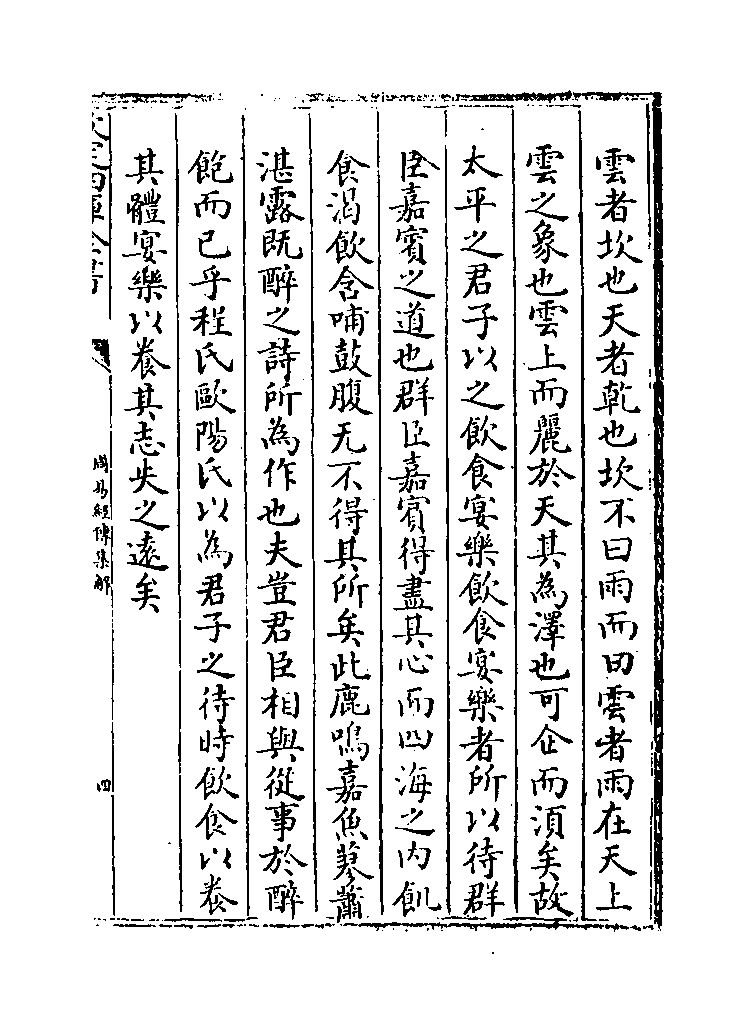 雲者坎也天者乾也坎不曰雨而曰雲者雨在天上
雲之象也雲上而麗於天其為澤也可企而須矣故
太平之君子以之飲食宴樂飲食宴樂者所以待群
臣嘉賓之道也群臣嘉賓得盡其心而四海之内飢
食渴飲含哺鼓腹无不得其所矣此鹿鳴嘉魚蓼蕭
湛露既醉之詩所為作也夫豈君臣相與從事於醉
飽而已乎程氏歐陽氏以為君子之待時飲食以養
其體宴樂以養其志失之遠矣
欽定四庫全書
周易經傳集解
四